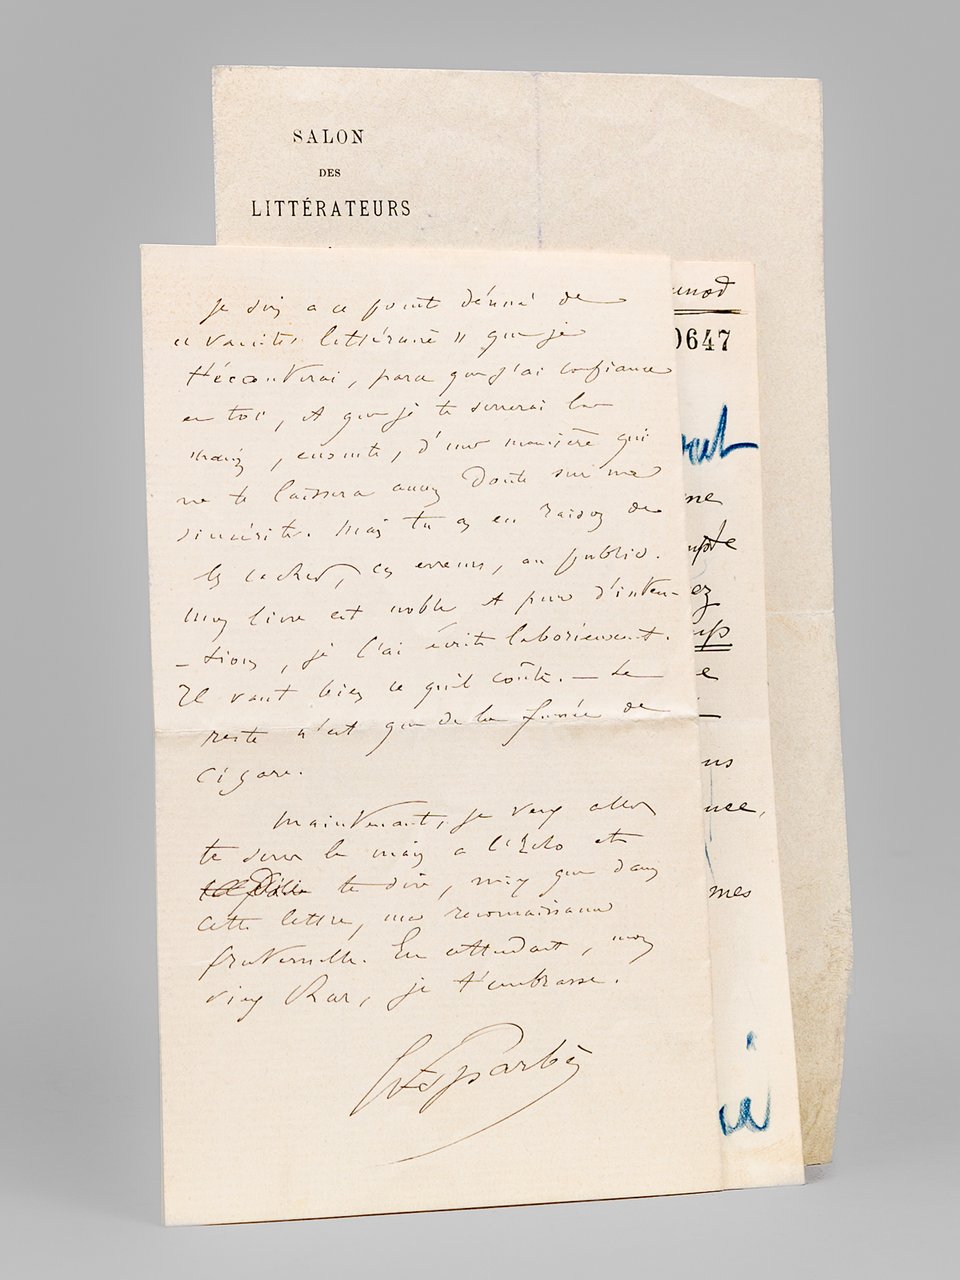 SALON
DES
LITTÉRATEURS
je suis a ce point dénué de
« vanités littéraires » que je
t'écouterai, parce que j'ai confiance
en toi, et que je te serrerai la
main, ensuite, d'une manière qui
ne te laissera aucun doute sur ma
sincérité. Mais tu as eu raison de
les cacher, ces erreurs, au public.
Mon livre est noble et pur d'inten-
-tion, je l'ai écrit laborieusement.
Il vaut bien ce qu'il coûte. — Le
reste n'est que de la fumée de
cigare.
Maintenant, je veux aller
te serrer la main a l'Echo et
te dire, mieux que dans
cette lettre, ma reconnaissance
fraternelle. En attendant, mon
vieux, je t'embrasse.
d'Esparbès
0647
me
mpte
ez
e
us
nce,
mes